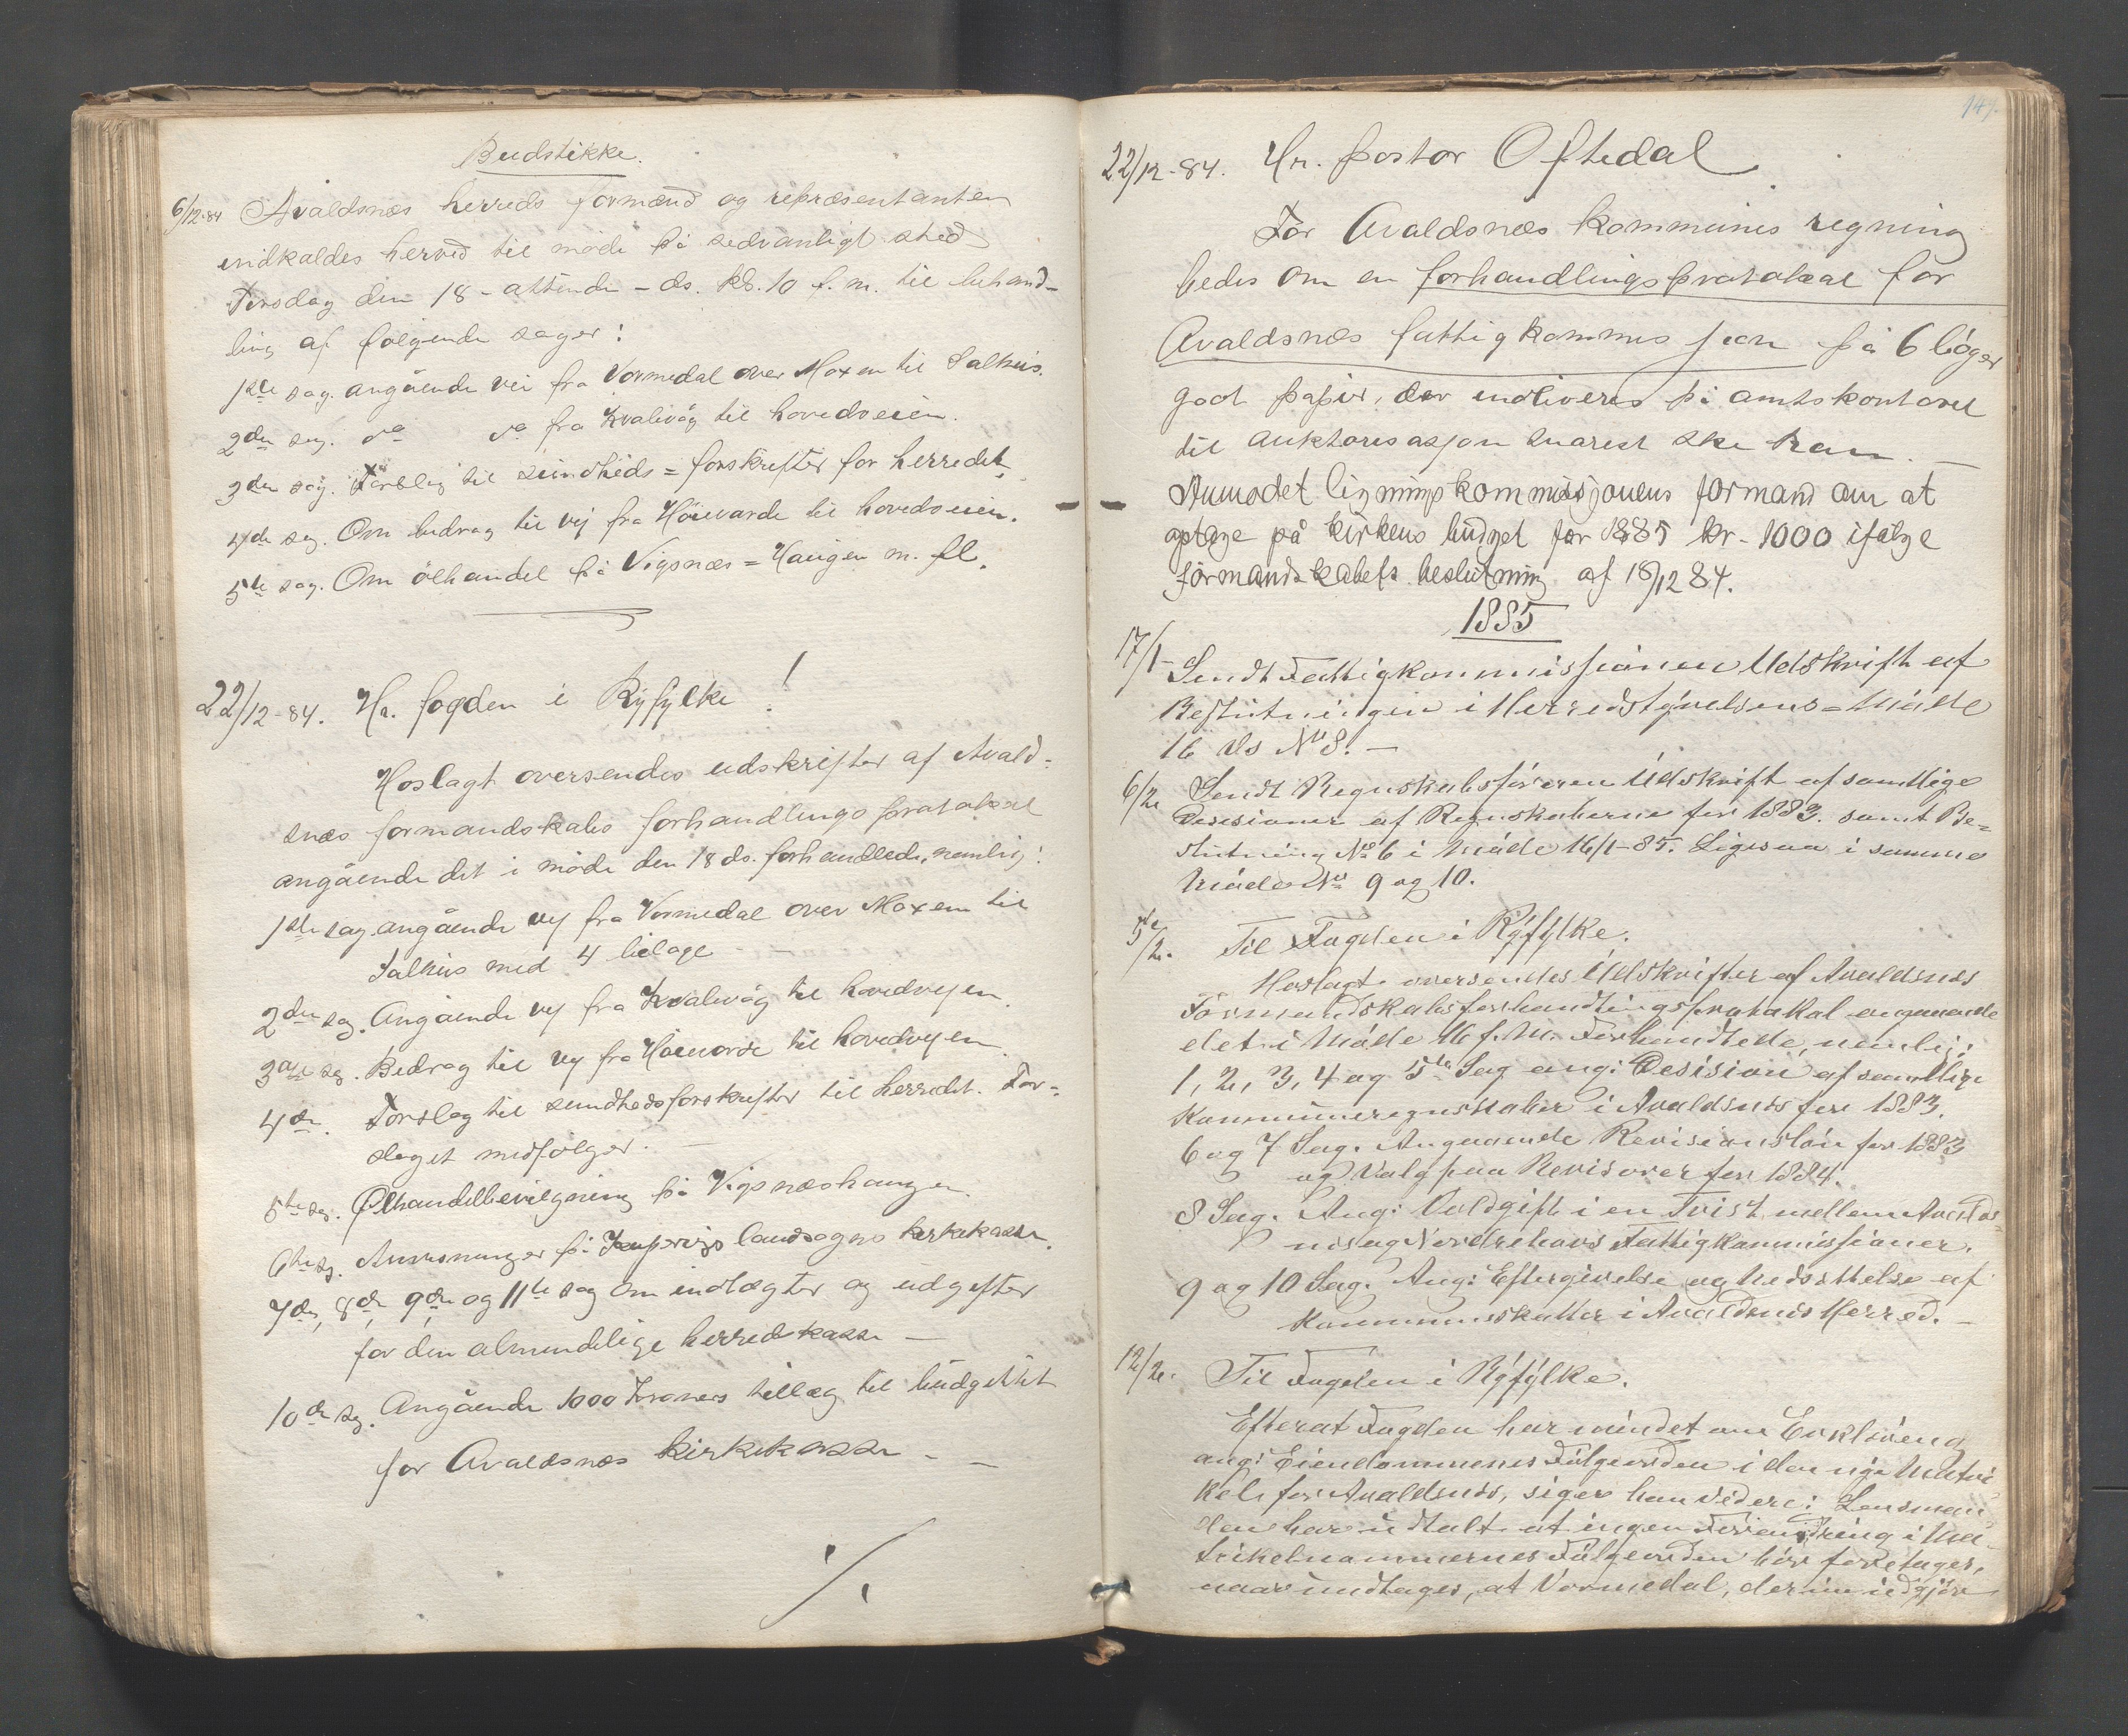 Budstikke.
6/12-84 Avaldsnæs herreds formænd og repræsentanten
indkaldes herved til møde på sedvanligt sted
Torsdag den 18 - attende - ds. kl. 10 f. m. til behand-
ling af følgende sager:
1ste sag. angående vei fra Vormedal over Moxen til Salhus.
2den sag. do do fra Kvalevåg til hovedveien.
3die sag. Forslag til sundheds=forskrifter for herredet.
4de sag. Om bidrag til vej fra Høievarde til hovedveien.
5te sag. Om ølhandel på Vigsnæs=Haugen m. fl.
22/12-84. Hr. fogden i Ryfylke!
Hoslagt oversendes udskrifter af Avald-
snæs formandskabs forhandlingsprotokol
angående det i møde den 18 ds. forhandlede, nemlig:
1ste sag angående vej fra Vormedal over Moxen til
Salhus med 4 bilage -
2den sag. Angående vej fra Kvalevåg til hovedvejen.
3die sag. Bidrag til vej fra Høievarde til hovedvejen
4de. Forslag til sundhedsforskrifter til herredet. For-
slaget medfølger. -
5te sag. Ølhandelbevilgning på Vigsnæshaugen.
6te sg. Anvisninger på landsogns kirkekasse.
7de, 8de, 9de og 11te sag om indtægter og udgifter
for den almindelige herredskasse -
10de sg. Angående 1000 Kroners tillæg til büdgettet
for Avaldsnæs kirkekasse - -
./.
147.
22/12-84. Hr. pastor Oftedal
For Avaldsnæs kommunes regning
bedes om en forhandlingsprotokol for
Avaldsnæs fattigkommissjon på 6 bøger
godt papir, der indleveres på amtskontoret
til auktorisasjon snarest ske kan. -
Anmodet ligningskommissjonens formand om at
optage på kirkens budget for 1885 kr. 1000 ifølge
formandskabets beslutning af 18/12 84.
1885
17/1- Sendt Fattigkommissionen Udskrift af
Beslutningen i Herredstyrelsens=Møde
16 ds No 8. -
6/2 Sendt Regnskabsføreren Udskrift af samtlige
Desisioner af Regnskaberne for 1883. samt Be=
slutning No 6 i Møde 16/1-85. Ligesaa i samme
Møde No 9 og 10.
5te/2. Til Fogden i Ryfylke.
Hoslagt oversendes Udskrifter af Avaldsnæs
Formandskabsforhandlingsprotokol angaaende
det i Møde 16 f. M. Forhandlede, nemlig:
1, 2, 3, 4 og 5te Sag ang: Desision af samtlige
Kommuneregnskaber i Avaldsnæs for 1883.
6 og 7 Sag. Angaaende Revisionsløn for 1883
og Valg paa Revisorer for 1884.
8 Sag. Ang: Voldgift i en Tvist mellem Avalds=
næs og Nordrehovs Fattigkommissioner.
9 og 10 Sag. Ang: Eftergivelse og Nedsettelse af
Kommuneskatter i Avaldsnæs Herred. -
12/2. Til Fogden i Ryfylke.
Efterat Fogden har mindet om Erklæring
ang: Eiendommenes Følgeorden i den nye Matri
kel for Avaldsnæs, siger han videre: Lensman
den har udtalt at ingen Forandring i Ma-
trikelnummernes Følgeorden bør foretages,
naar undtages, at Vormedal, der nu udgjør